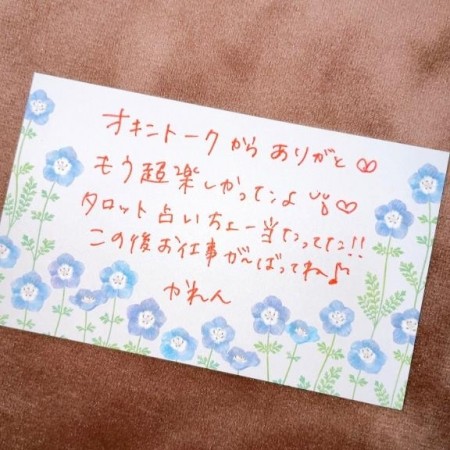 オキントークからありがと♡
もう超楽しかってンよ♡
タロット占いちょー当たってた!!
この後お仕事がんばってね♪
かれん